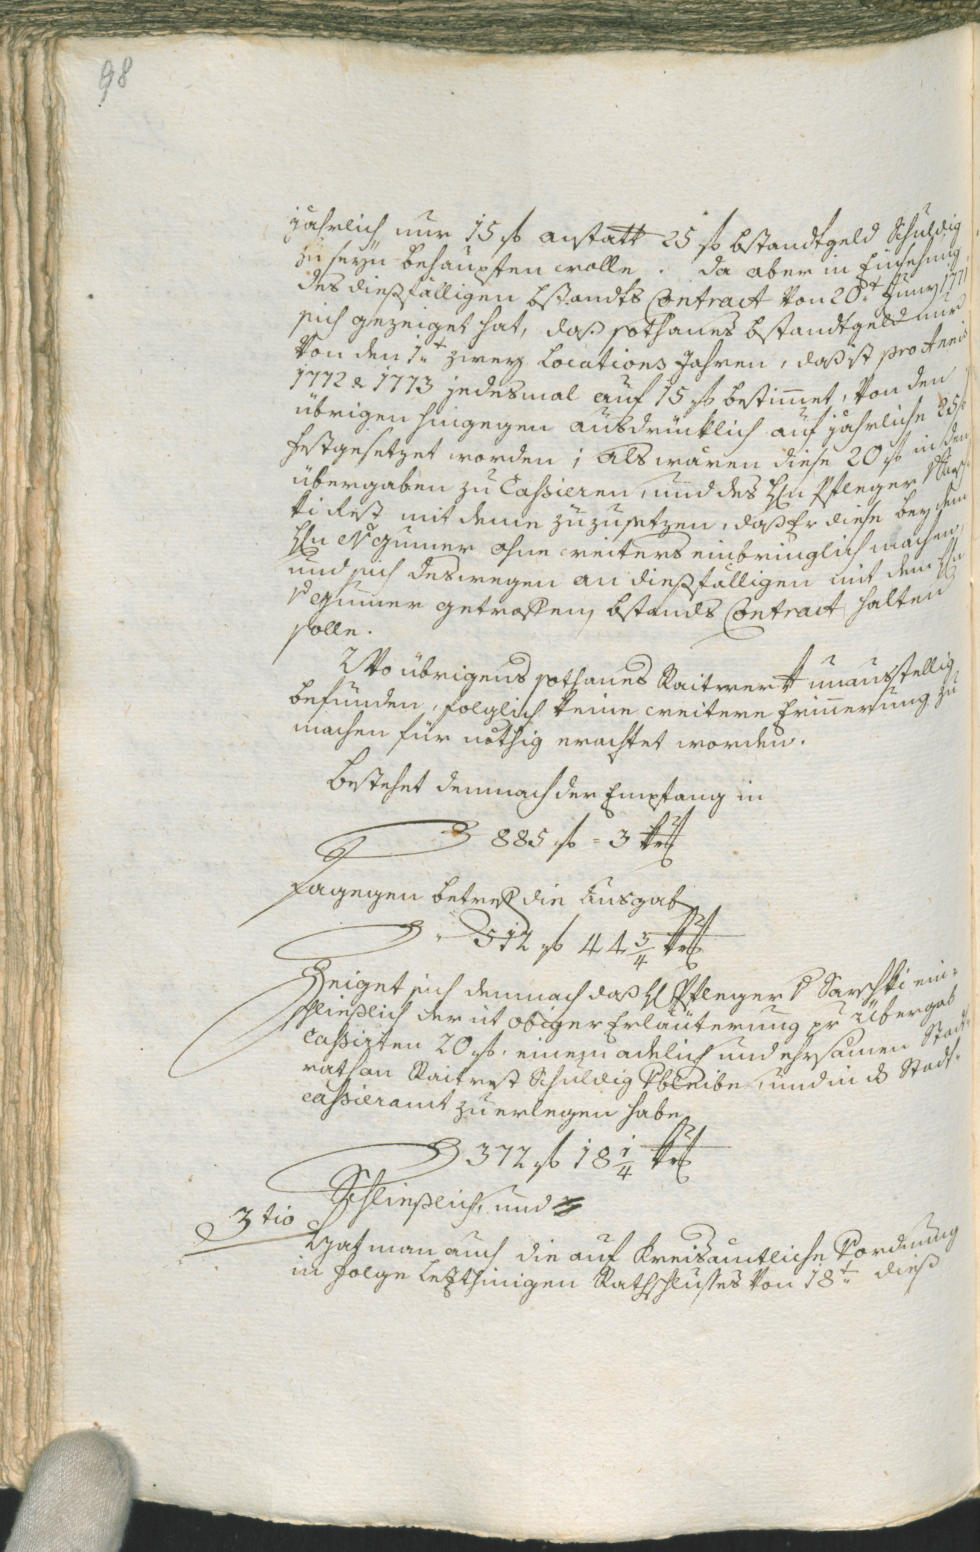 98
jährlich nur 15 f anstatt 25 f bstandtgeld Schuldig
zu seyn behaupten wolle. da aber in Einsehung
des dießfälligen bstandts Contract von 20t Juny 1771
sich gezeiget hat, daß sothanes bstandtgeld nur
von den 1t zwey Locations Jahren, daß ist pro Annis
1772 & 1773 jedesmal auf 15 f bestimet, von den
übrigen hingegen ausdrücklich auf jährliche 25 f
festgesetzet worden; als wären diese 20 f in den
übergaben zu Cassieren, und des Hn Pfleger
Rest mit deme zuzusetzen, daß Er diese bey dem
Hn ohne weiters einbringlich machen,
und sich deswegen an dießfälligen mit dem Hn
getroffenen bstands Contract halten
solle.
2do übrigens sothanes Raitwerk unausstellig
befunden, folglich keine weitere Erinnerung zu
machen für nöthig erachtet worden.
bestehet demnach der Empfang in
885 f = 3 kr
Dagegen betrefft die Ausgab
512 f 44 3/4 kr
Zeiget sich demnach daß H Pfleger v Sarchti ein=
schließlich der ut obiger Erläuterung pr Übergab
Cassirten 20 f. einem adelich und ehrsamen Stadt=
rath an Raitrest Schuldig Verbleibe, und in ds Stadt=
cassieramt zu erlegen habe
372 f 18 1/4 kr
Schließlich, und
3tio
Hat man auch die auf Kreisamtliche Vordnung
in Folge letzthinigen Rathschlusses von 18t dieß